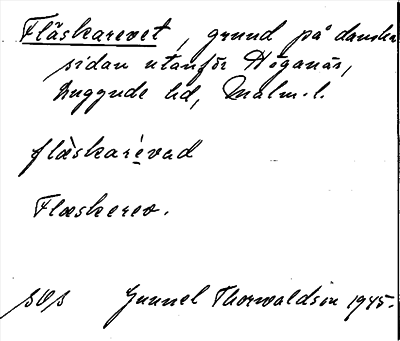 Fläskarevet, grund på danska
sidan utanför Höganäs,
Luggude hd, Malm. l.
flàskarévad
Flæskerev.
SOS Gunnel Thorwaldson 1945.